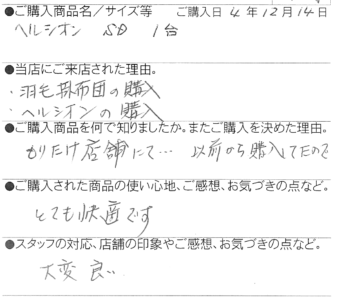 ●ご購入商品名／サイズ等　ご購入日 4 年 12 月 14 日
ヘルシオン　SD　1台
●当店にご来店された理由。
・羽毛掛布団の購入
・ヘルシオンの購入
●ご購入商品を何で知りましたか。またご購入を決めた理由。
もりたけ店舗にて… 以前から購入してたので
●ご購入された商品の使い心地、ご感想、お気づきの点など。
とても快適です
●スタッフの対応、店舗の印象やご感想、お気づきの点など。
大変良い